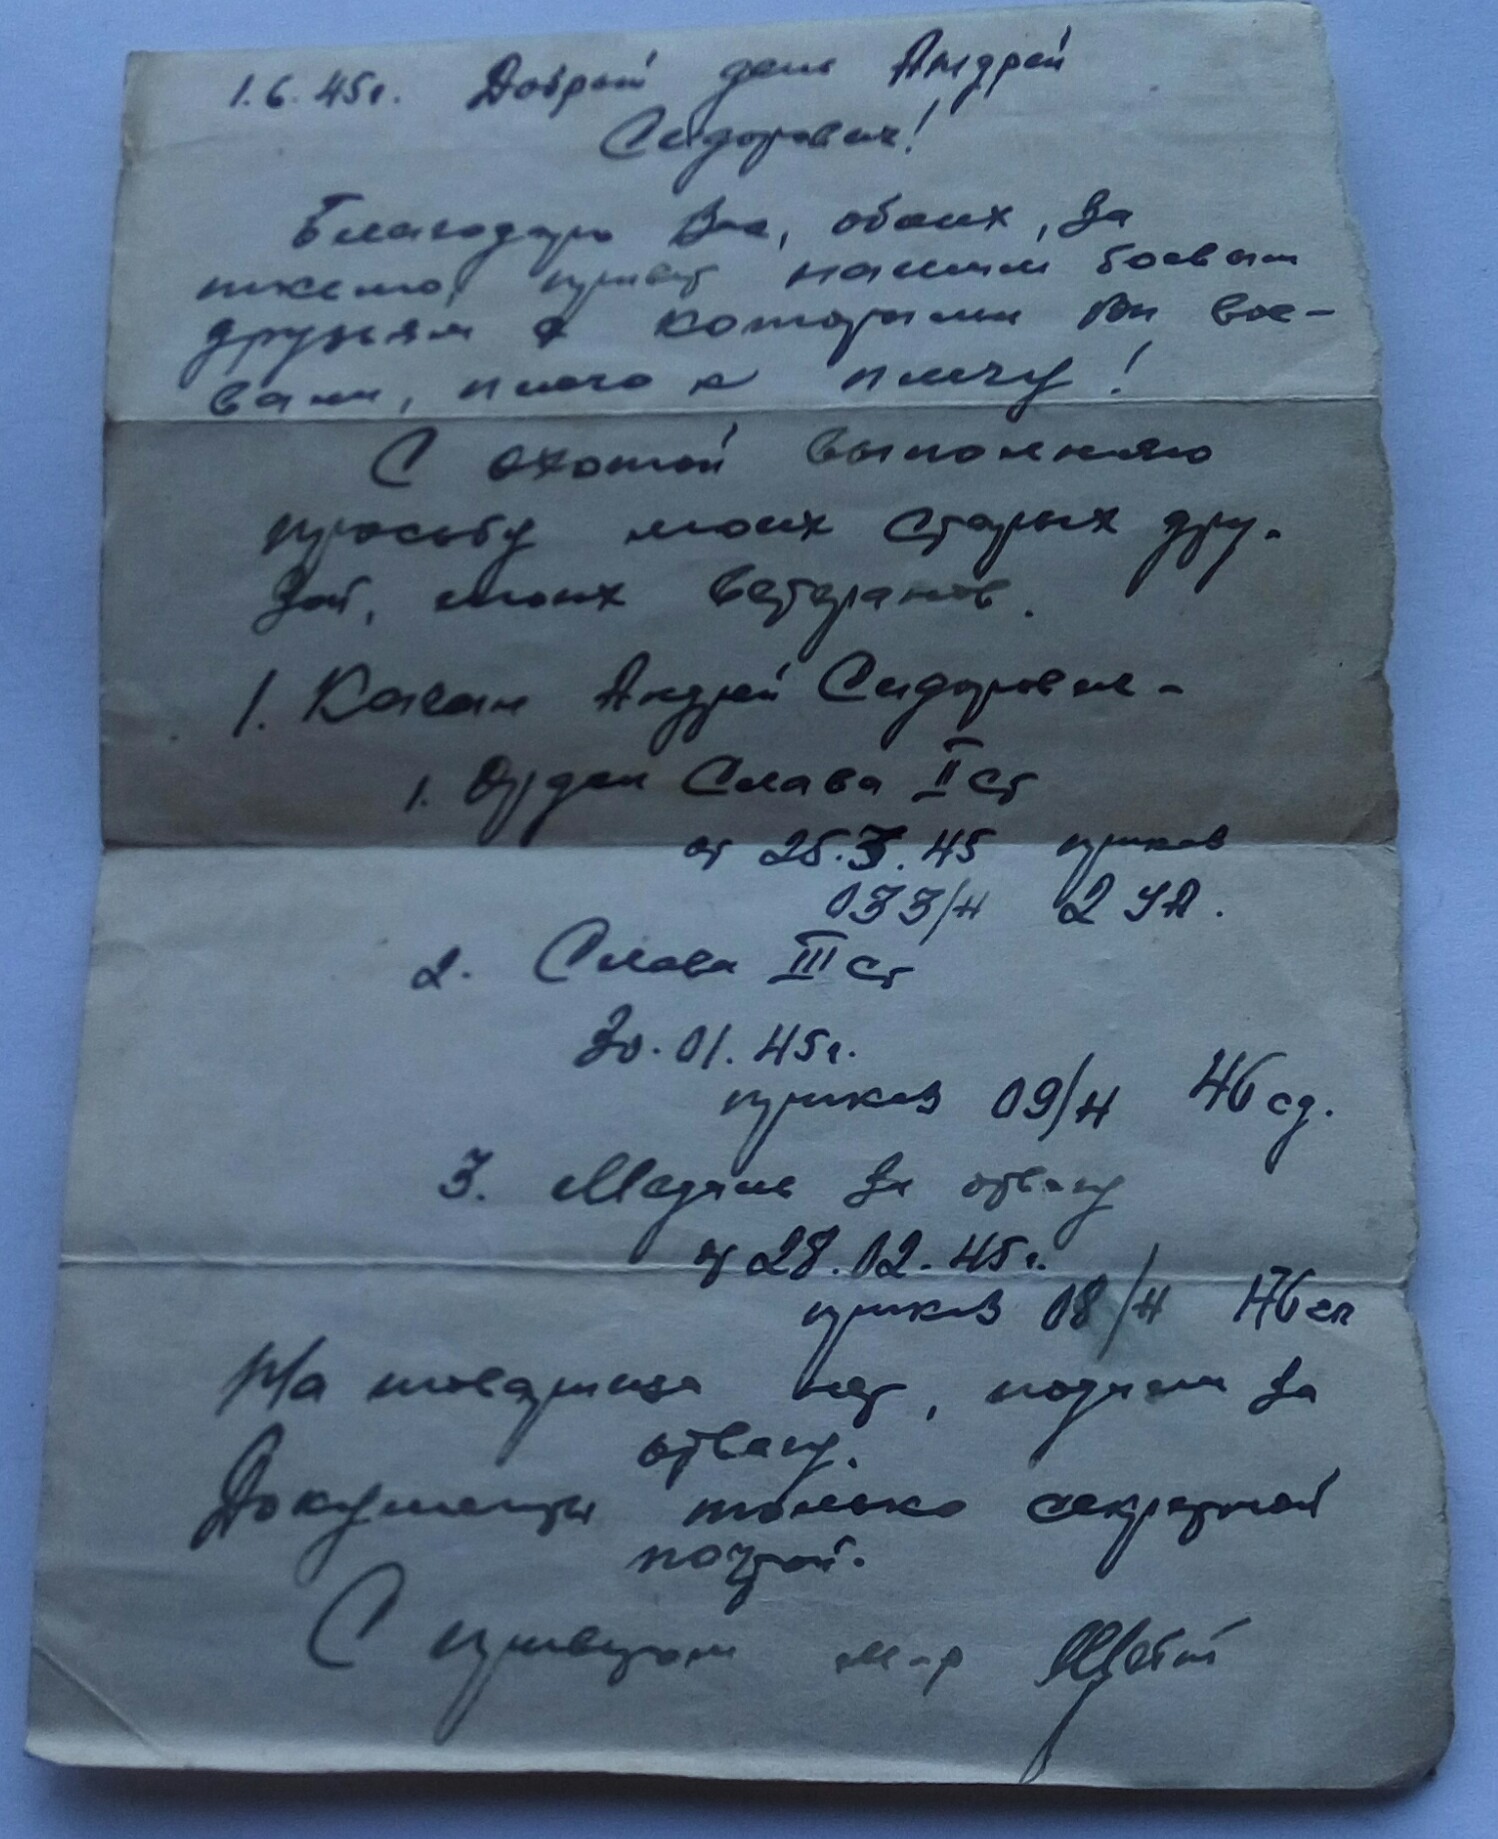 1.6.45г. Добрый день Андрей
Сидорович!
Благодарю Вас, обоих, за
письмо, привет нашим боевым
друзьям с которыми Вы вое-
вали, плечо к плечу!
С охотой выполняю
просьбу моих старых дру-
зей, моих ветеранов.
1. Качан Андрей Сидорович -
1. Орден Слава II ст
от 25.3.45 приказ
033/н 2 УА.
2. Слава III ст
30.01.45г.
приказ 09/н 46 сд.
3. Медаль за отвагу
от 28.02.45г.
приказ 08/н 176 сп
На товарища нет, подали за
отвагу.
Документы только секретной
почтой.
С приветом м-р